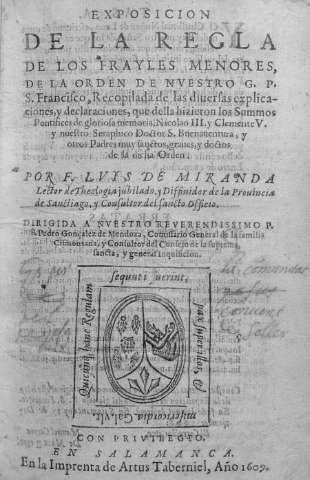 EXPOSICION
DE LA REGLA
DE LOS FRAYLES MENORES,
DE LA ORDEN DE NVESTRO G. P.
S. Francisco, Recopilada de las diuersas explica-
ciones, y declaraciones, que della hizieron los Summos
Pontifices de gloriosa memoria, Nicolao III. y Clemente V.
y nuestro Seraphico Doctor S. Buenauentura, y
otros Padres muy sanctos, graues, y doctos
de la dicha Orden.
POR F. LVIS DE MIRANDA
Lector de Theologia jubilado, y Diffinidor de la Prouincia
de Sanctiago, y Consultor del sancto Officio.
DIRIGIDA A NVESTRO REVERENDISSIMO P.
F. Pedro Gonçalez de Mendoza, Comissario General de la familia
Cismontana, y Consultor del Consejo de la suprema,
sancta, y general Inquisicion.
Quicunq; hanc Regulam
sequuti fuerint,
pax super illos, &
misericordia Gal. vlt.
CON PRIVILEGIO.
EN SALAMANCA.
En la Imprenta de Artus Taberniel, Año 1609.